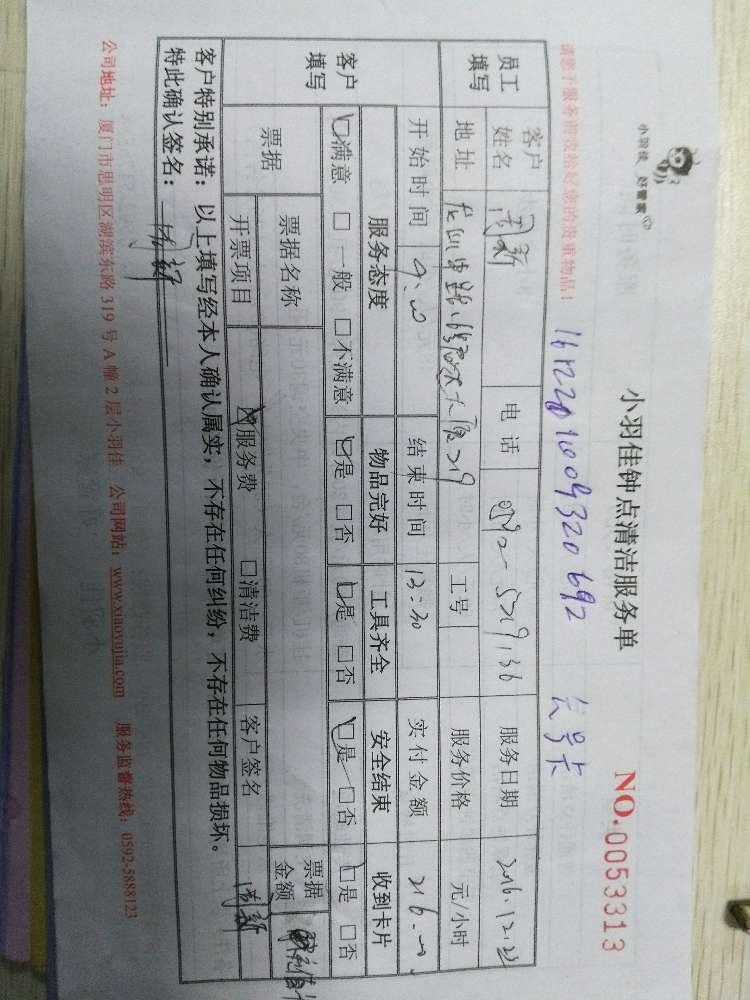 小羽佳 好管家
小羽佳钟点清洁服务单 NO.0053313
请您于服务前收拾好您的贵重物品!
员工填写 客户姓名 电话 服务日期 2016.12.22
地址 工号 服务价格 元/小时
开始时间 9:00 结束时间 13:30 实付金额 216.00
客户填写 服务态度 物品完好 工具齐全 安全结束 收到卡片
☑满意 □一般 □不满意 ☑是 □否 ☑是 □否 ☑是 □否 ☑是 □否
票据 票据名称 票据金额
开票项目 ☑服务费 □清洁费 客户签名
客户特别承诺:以上填写经本人确认属实,不存在任何纠纷,不存在任何物品损坏。
特此确认签名:
公司地址:厦门市思明区湖滨东路319号A幢2层小羽佳 公司网站:www.xiaoyujia.com 服务监督热线:0592-5888123